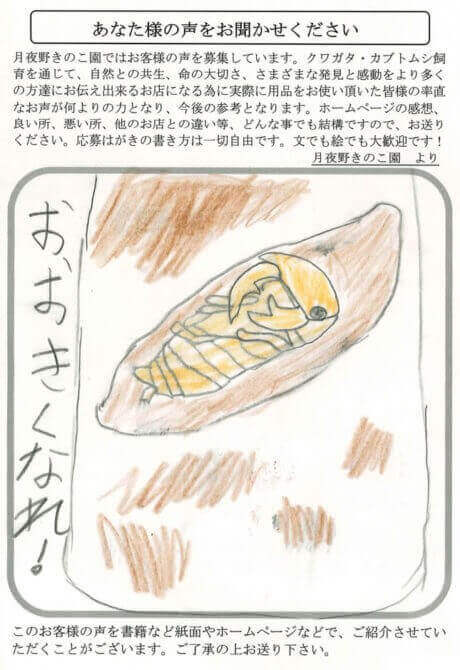 あなた様の声をお聞かせください
月夜野きのこ園ではお客様の声を募集しています。クワガタ・カブトムシ飼
育を通じて、自然との共生、命の大切さ、さまざまな発見と感動をより多く
の方達にお伝え出来るお店になる為に実際に用品をお使い頂いた皆様の率直
なお声が何よりの力となり、今後の参考となります。ホームページの感想、
良い所、悪い所、他のお店との違い等、どんな事でも結構ですので、お送り
ください。応募はがきの書き方は一切自由です。文でも絵でも大歓迎です！
月夜野きのこ園　より
おおきくなれ！
このお客様の声を書籍など紙面やホームページなどで、ご紹介させてい
ただくことがございます。ご了承の上お送り下さい。